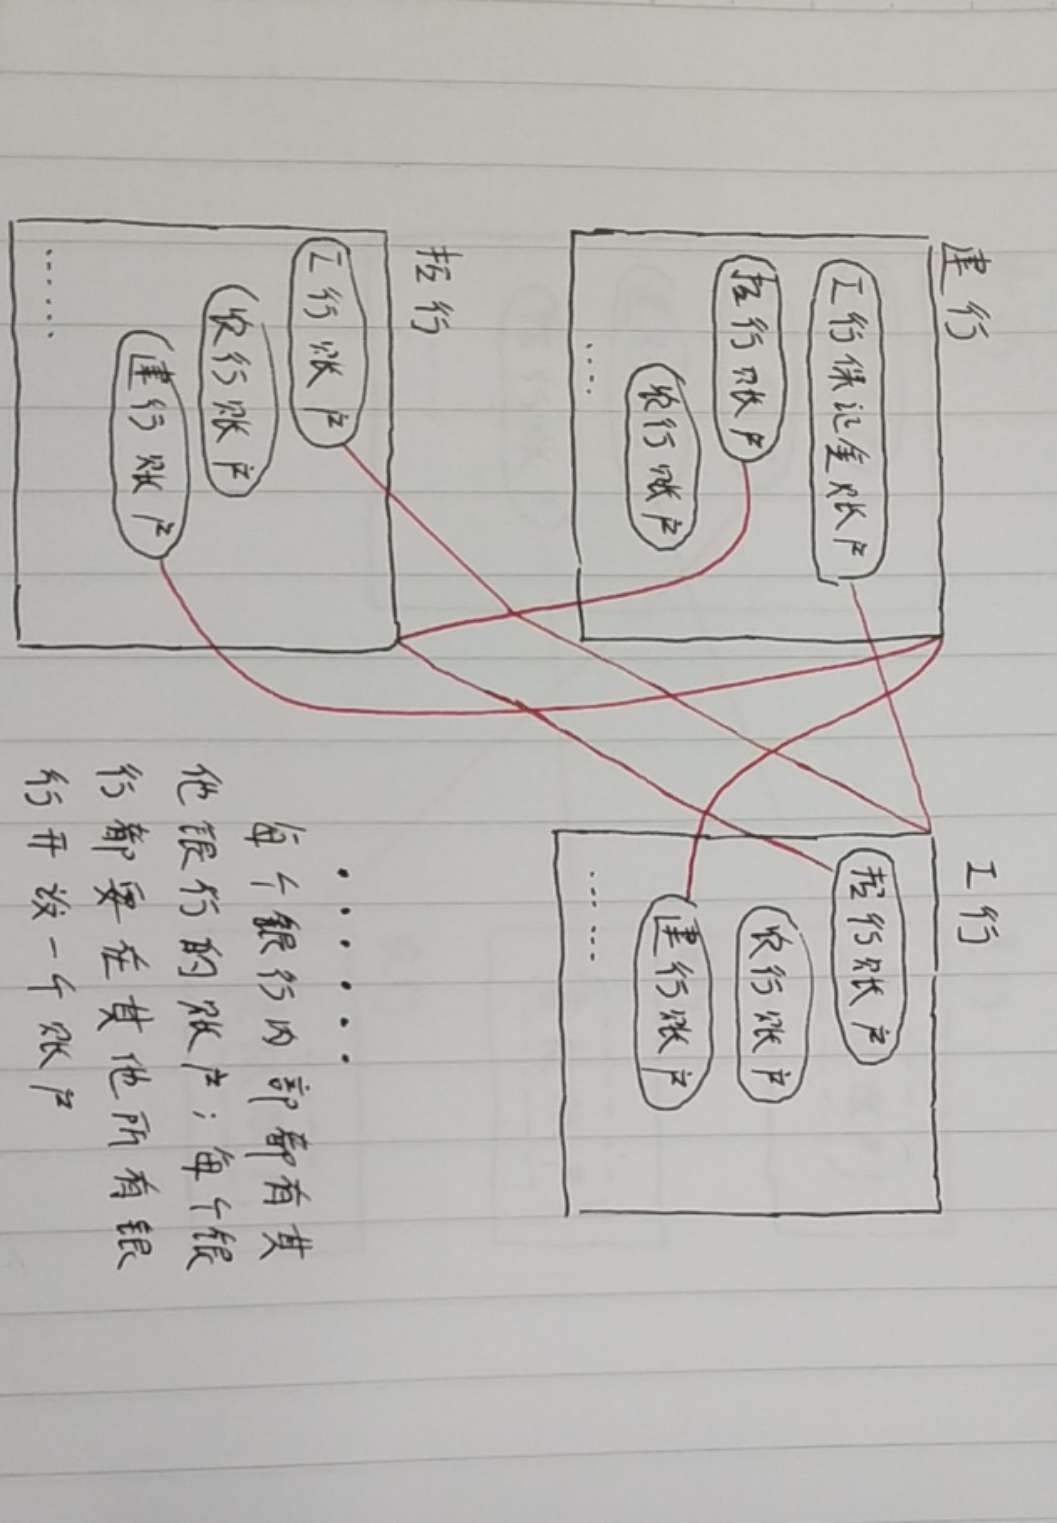 建行
工行保记金账户
招行账户
农行账户
....
工行
招行账户
农行账户
建行账户
......
招行
工行账户
农行账户
建行账户
......
......
每个银行内部都有其
他银行的账户；每个银
行都要在其他所有银
行开设一个账户